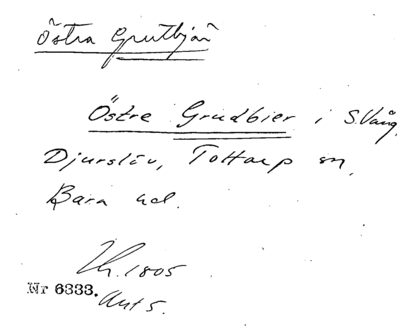 Östra Grutbjär
Östre Grudbier i S. Vång,
Djurslöv, Tottarp sn,
Bara hd.
Lh. 1805
Nr 6333. Akt 5.